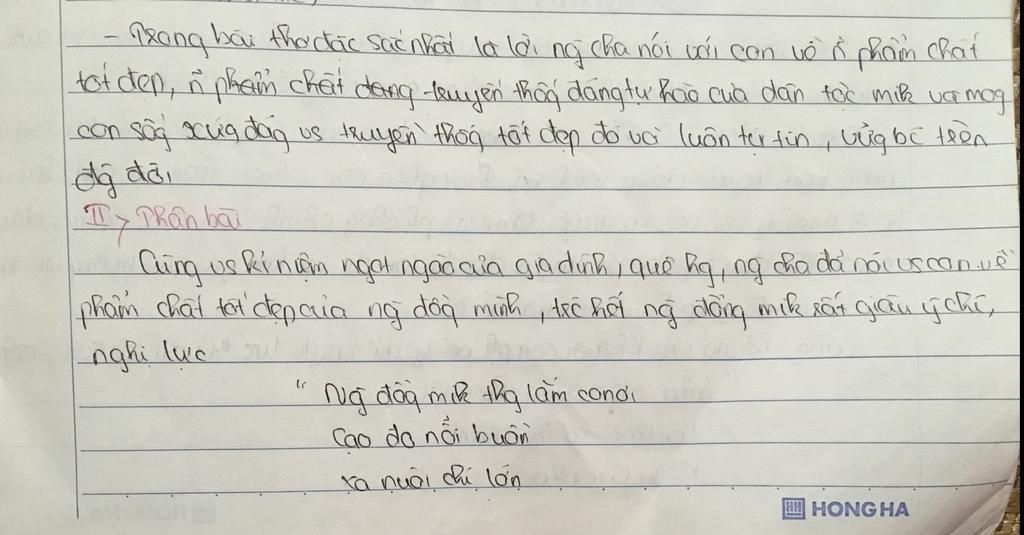 - Trong bài thơ đặc sắc nhất là lời ng cha nói với con về n~ phẩm chất
tốt đẹp, n~ phẩm chất đang truyền thốg đáng tự hào của dân tộc mik và mog
con sốg xứg đág vs truyền thốg tốt đẹp đó và luôn tự tin, vữg bc trên
đg đời
II, Thân bài
Cùng vs kỉ niệm ngọt ngào của gia đình, quê hg, ng cha đã nói vs con về
phẩm chất tốt đẹp của ng đồg mình, trc hết ng đồng mik rất giàu ý chí,
nghị lực
“ Ng đồg mik thg lắm con ơi
Cao đo nỗi buồn
xa nuôi chí lớn
HONG HA